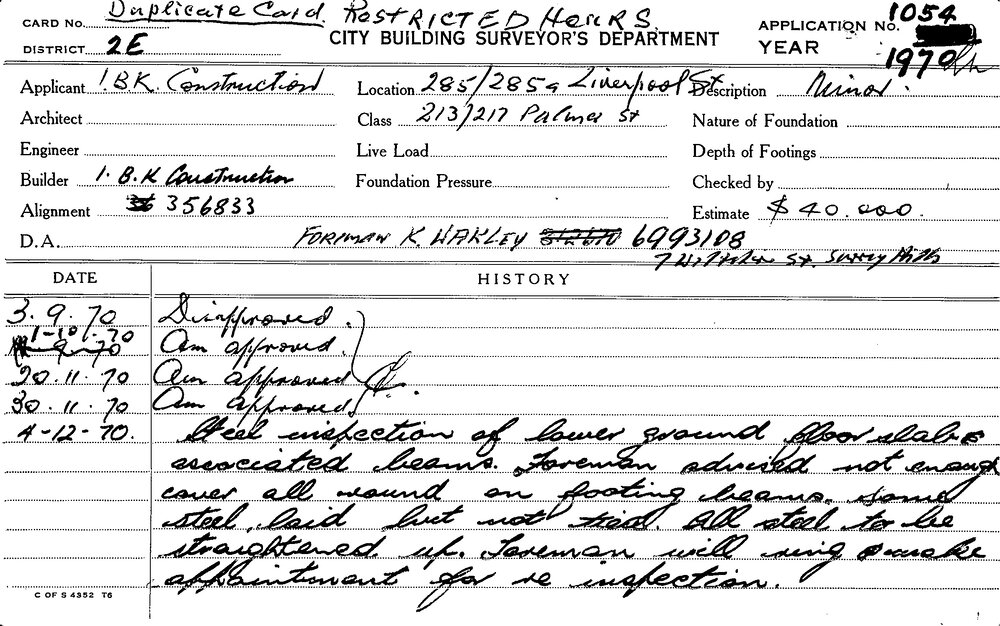 CARD No. Duplicate Card RESTRICTED HOURS APPLICATION No. 1054
DISTRICT 2E CITY BUILDING SURVEYOR'S DEPARTMENT YEAR 1970
Applicant I.B.K. Construction Location 285/285a Liverpool St Description Minor.
Architect Class 213/217 Palmer St Nature of Foundation
Engineer Live Load Depth of Footings
Builder I. B.K Construction Foundation Pressure Checked by
Alignment 356833 Estimate $ 40.000.
D.A. FOREMAN K. WAKLEY 6993108
St. Surry Hills
DATE HISTORY
3. 9. 70 Disapproved.
1-10-70 Am approved.
20. 11. 70 Am approved
30. 11. 70 Am approved
4-12-70. Steel inspection of lower ground floor slab &
associated beams. Foreman advised not enough
cover all round on footing beams. Some
steel laid but not tied. All steel to be
straightened up. Foreman will ring & make
appointment for re inspection.
C OF S 4352 T6